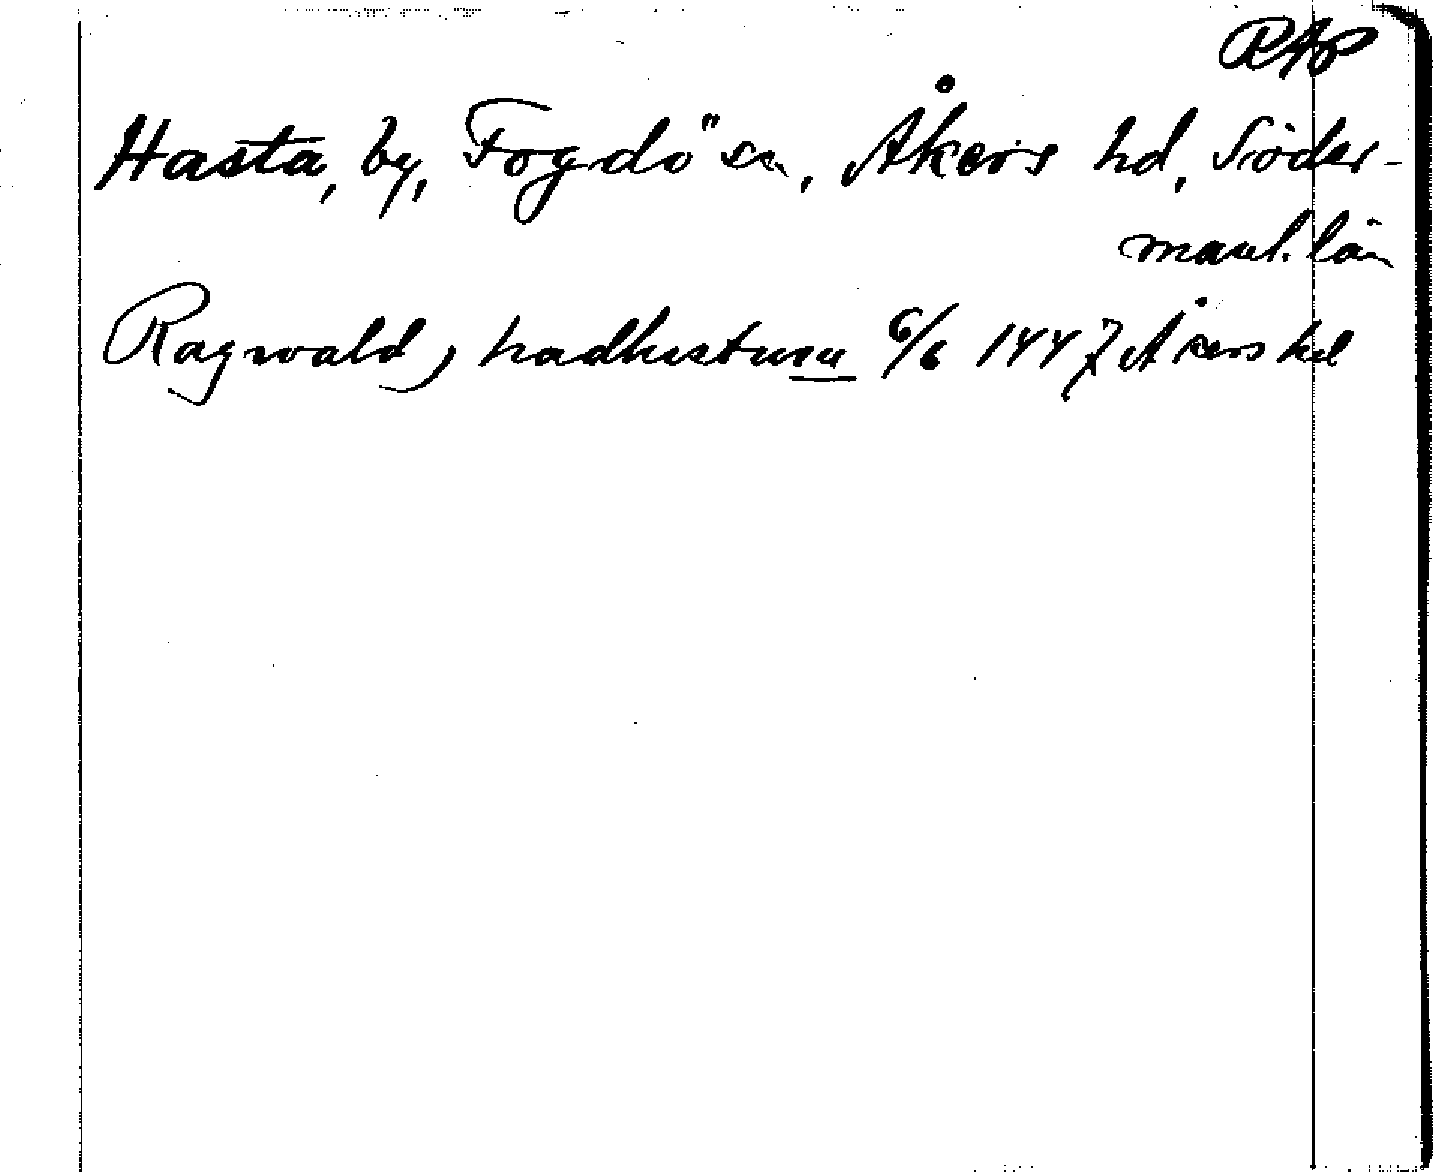 RAp
Hasta, by, Fogdö sn, Åkers hd, Söder-
manl. län
Ragwald, hadhustum 6/6 1447 Åkers hd